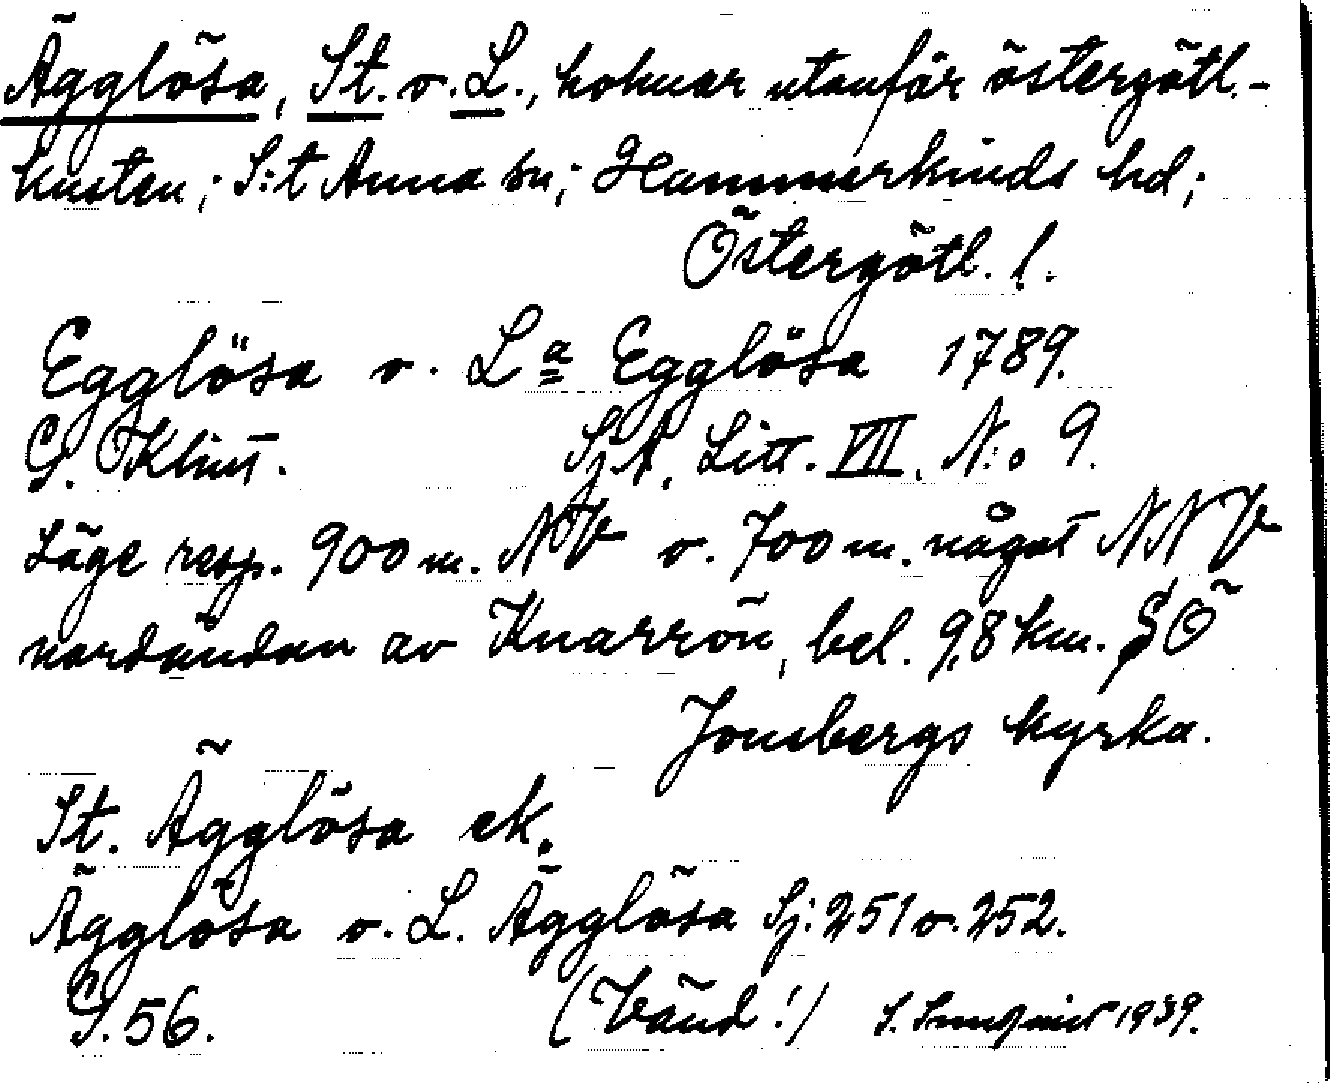 Ägglösa, St. o. L., holmar utanför östergötl.-
kusten; S:t Anna sn; Hammarkinds hd;
Östergötl. l.
Egglösa o. La Egglösa 1789.
G. Klint. SjA, Litt. VII. N:o 9.
Läge resp. 900 m. NV o. 700 m. något NNV
nordändan av Knarrön, bel. 9,8 km. SÖ
Jonsbergs kyrka.
St. Ägglösa ek.
Ägglösa o. L. Ägglösa Sj: 251 o. 252.
S. 56. (Vänd!) 1939.